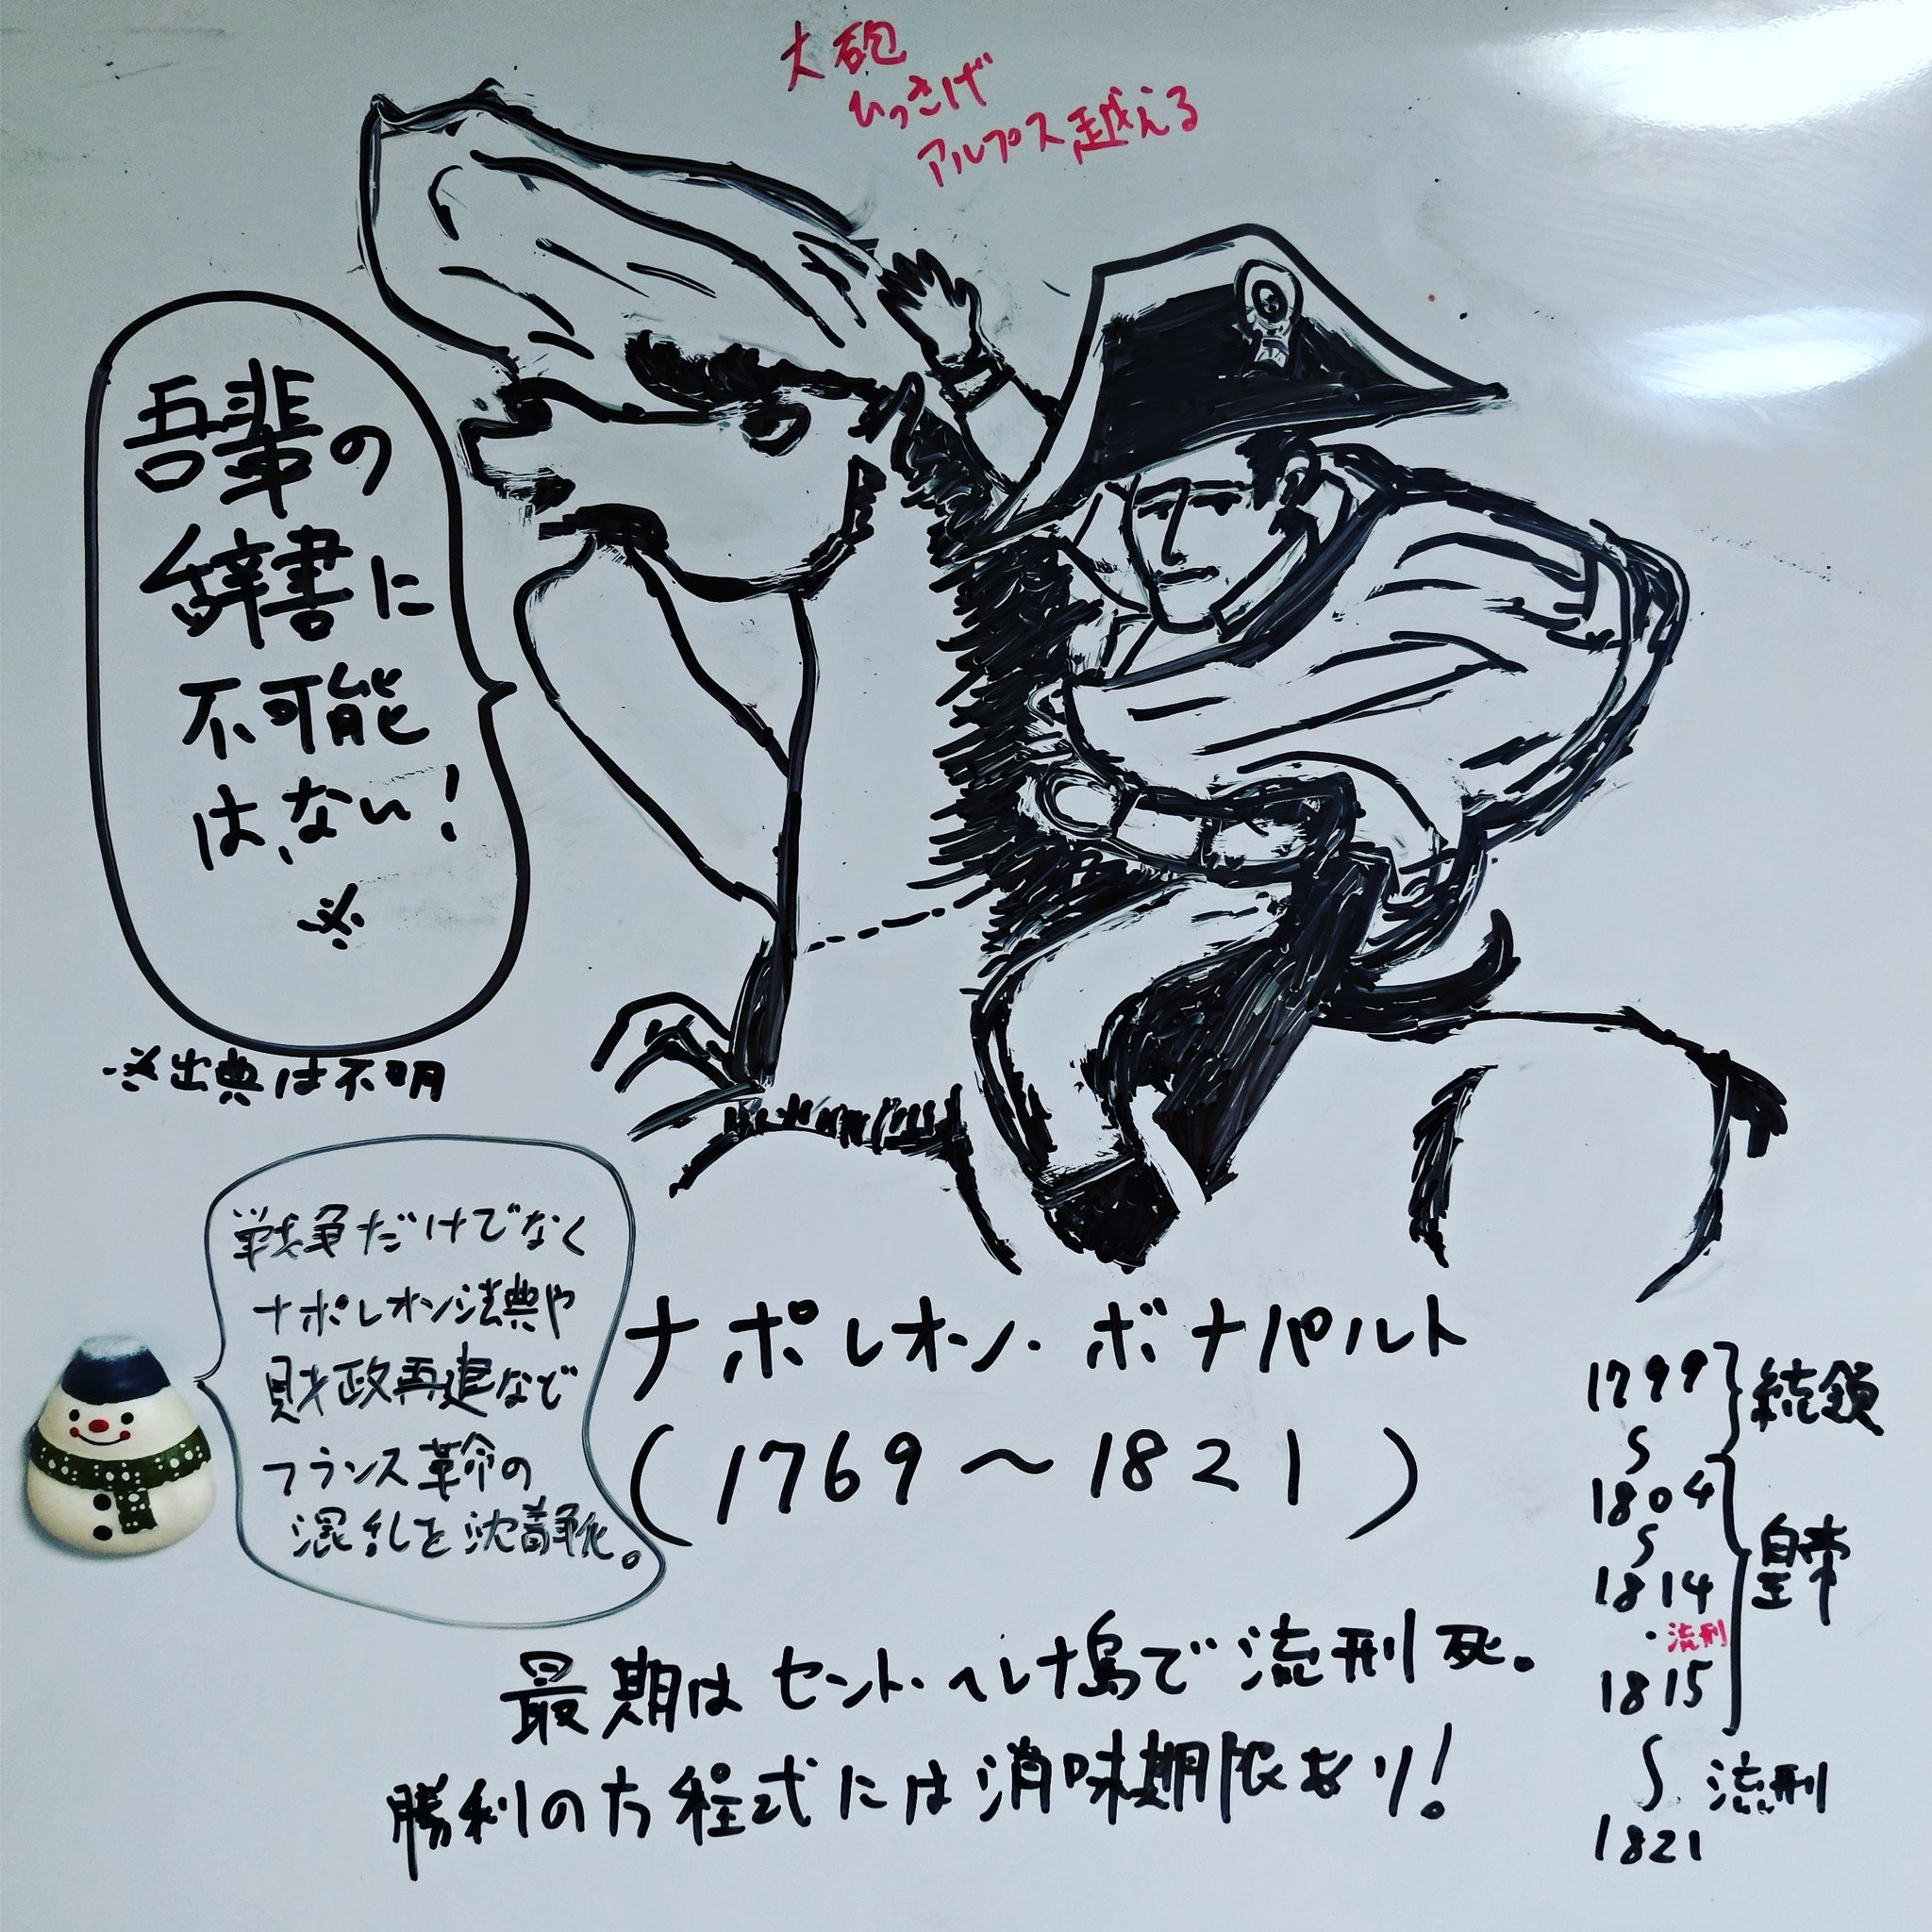 大砲
ひっさげ
アルプス越える
吾輩の
辞書に
不可能
は、ない!
※
※出典は不明
戦争だけでなく
ナポレオン法典や
財政再建など
フランス革命の
混乱を沈静化。
ナポレオン・ボナパルト
(1769〜1821)
1799
〜
1804
統領
〜
1814
・流刑
1815
皇帝
〜 流刑
1821
最期はセント・ヘレナ島で流刑死。
勝利の方程式には消味期限あり!